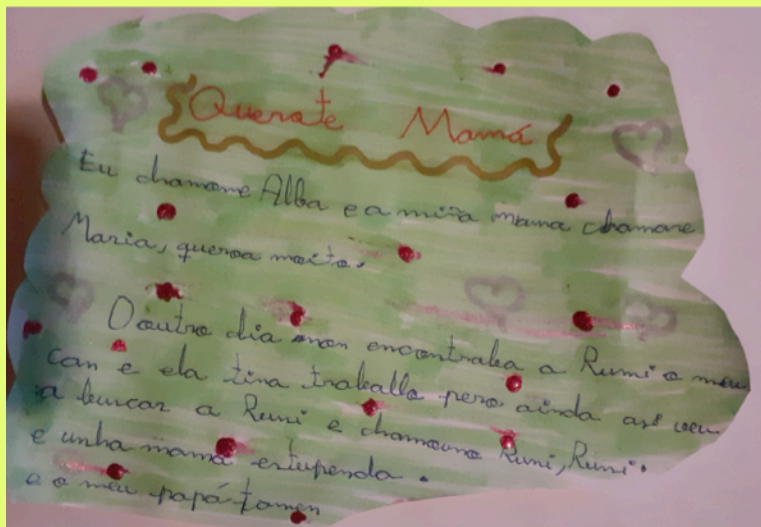 Querote Mamá
Eu chamome Alba e a miña mama chamase
Maria, queroa moito.
O outro dia non encontraba a Rumi o meu
can e ela tiña traballo pero ainda asi veu
a buscar a Rumi e chamouno Rumi, Rumi.
e unha mamá estupenda.
e o meu papá tamen